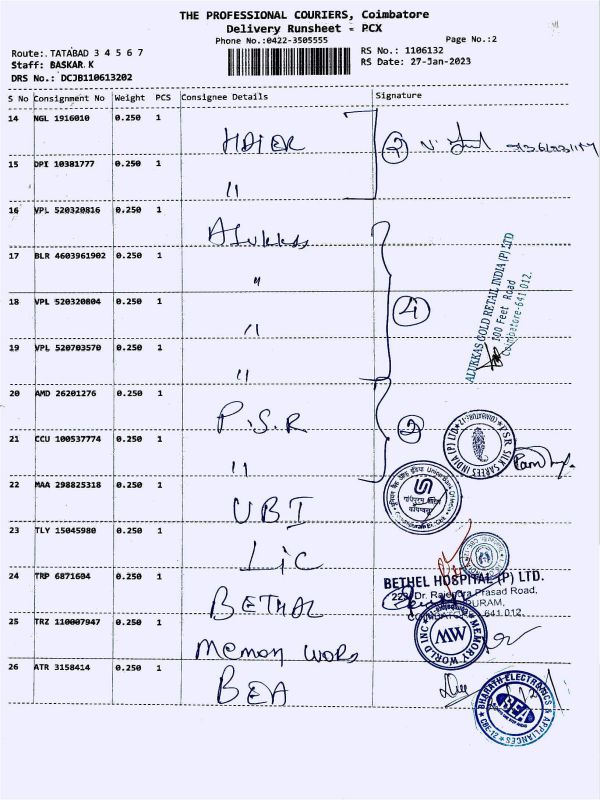 THE PROFESSIONAL COURIERS, Coimbatore
Delivery Runsheet - PCX
Phone No.:0422-3505555
Page No.:2
Route: TATABAD 3 4 5 6 7
RS No.: 1106132
Staff: BASKAR K
RS Date: 27-Jan-2023
DRS No.: DCJB110613202
S No Consignment No Weight PCS Consignee Details Signature
14 NGL 1916010 0.250 1
HAIER
2
15 DPI 10381777 0.250 1
11
16 VPL 520320816 0.250 1
Alukkas
17 BLR 4603961902 0.250 1
"
18 VPL 520320804 0.250 1
11
4
ALUKKAS GOLD RETAIL INDIA (P) LTD
100 Feet Road
Coimbatore-641 012.
19 VPL 520703570 0.250 1
11
20 AMD 26201276 0.250 1
P.S.R
2
PSR SILK SAREES INDIA (P) LTD
21 CCU 100537774 0.250 1
11
22 MAA 298825318 0.250 1
UBI
23 TLY 15045980 0.250 1
LIC
24 TRP 6871604 0.250 1
BETHAL
BETHEL HOSPITAL (P) LTD.
Dr. Rajendra Prasad Road,
641 012.
25 TRZ 110007947 0.250 1
Memory WORD
MEMORY WORLD INC
MW
26 ATR 3158414 0.250 1
BEA
BHARATH ELECTRONICS & APPLIANCES
BEA
CBE-12